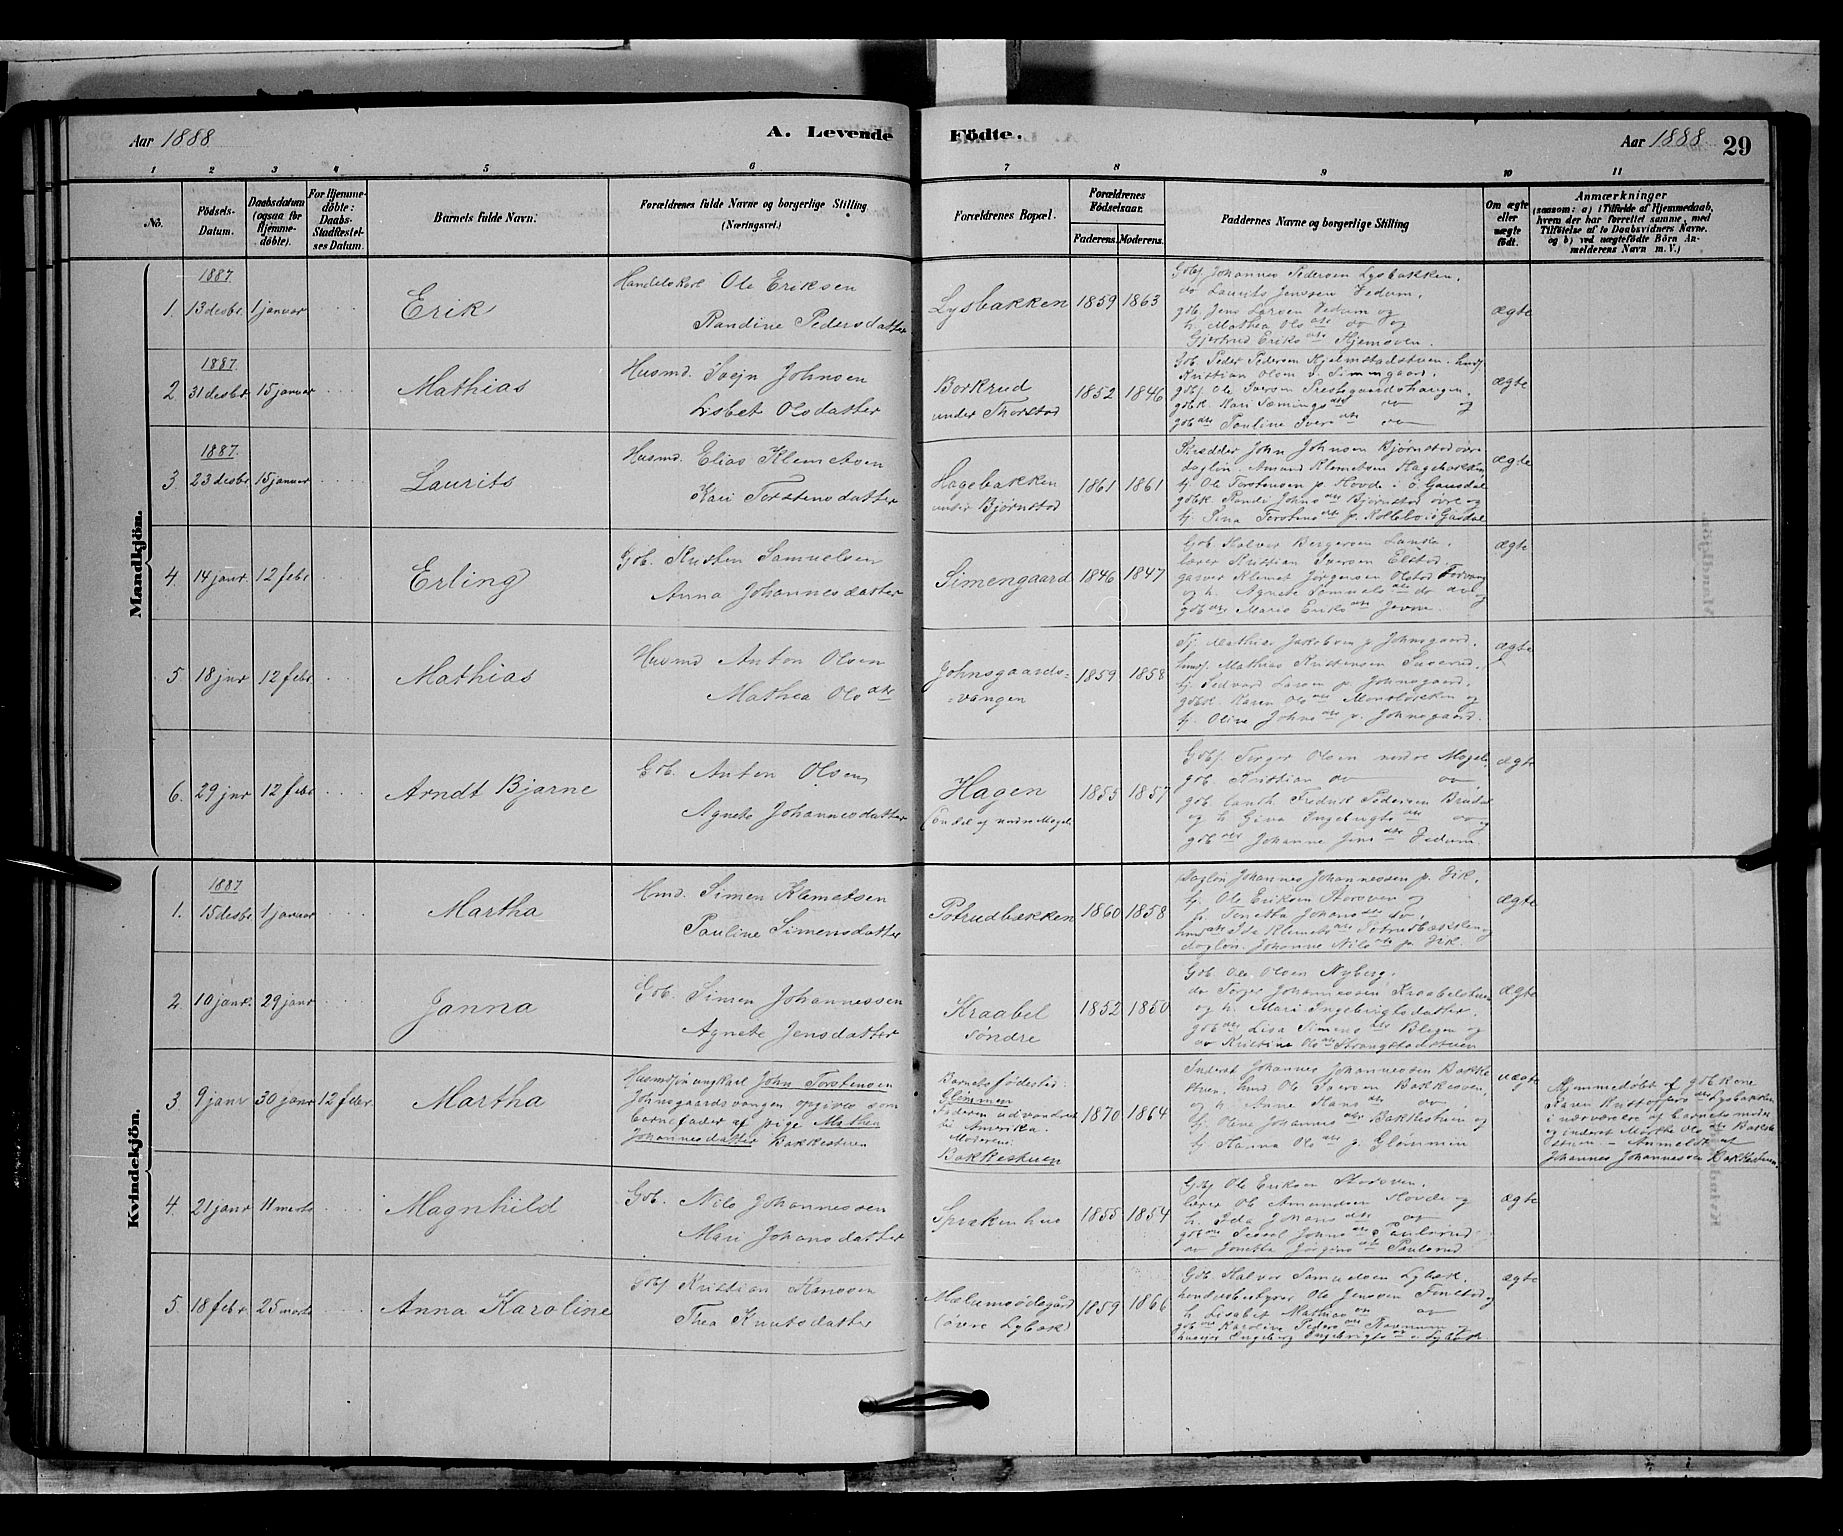 Aar 1888
A. Levende
Födte.
Aar 1888
29
1 2 3 4 5 6 7 8 9 10 11
No.
Födsels-
Datum.
Daabsdatum
(ogsaa for
Hjemme-
döbte).
For Hjemme-
döbte:
Daabs-
Stadfæstel-
ses Datum.
Barnets fulde Navn.
Forældrenes fulde Navne og borgerlige Stilling
(Næringsvei.)
Forældrenes Bopæl.
Forældrenes
Födselsaar.
Faderens.
Moderens.
Faddernes Navne og borgerlige Stilling
Om ægte
eller
uægte
födt.
Anmærkninger
(saasom: a) i Tilfælde af Hjemmedaab,
hvem der har forrettet samme, med
Tilföielse af to Daabsvidners Navne.
og b) ved uægtefödte Börn An-
melderens Navn m. V.)
Mandkjön.
1887
1. 13 desbr. 1 januar
Erik
Handelskarl Ole Eriksen
Randine Pedersdatter
Lysbakken
1859 1863
Gbf. Johannes Pedersen Lysbakken.
do Laurits Jenssen Vedum.
gbr. Jens Larsen Vedum og
h. Mathea Olsdtr do og
Gjertrud Eriksdtr Hjemsven.
ægte
1887
2. 31 desbr 15 januar
Mathias
Husmd. Svejn Johnsen
Lisbet Olsdatter
Borkrud
under Thorstad
1852 1846
Gb. Peder Pedersen Hjelmstadstuen. husf.
Kristian Olsen v. Simengaard.
gbf. Ole Iversen Prestegaardshaugen.
gbk. Kari Sæmingsdtr do og
gbdtr Pauline Iversdtr do
ægte
1887.
3. 23 desbr 15 januar
Laurits
Husmd. Elias Klemetsen
Kari Torstensdatter
Hagebakken
under Bjørnstad
1861 1861
Skrædder John Johnsen Bjørnstad øvre
dagløn. Amund Klemetsen Hagebakken
tj. Ole Torstensen p. Hovde i ö. Gausdal
gbk. Randi Johnsdtr Bjørnstad øvre og
tj. Sina Torstensdtr p.
ægte
4. 14 janr. 12 febr
Erling
Gb. Kristen Samuelsen
Anna Johannesdatter
Simengaard
1846 1847
Gb. Halvor Bergersen Landa.
lærer Kristian Iversen Elstad.
garver Klemet Jørgensen Olstad
og h. Agnete Samuelsdtr do og
gbdtr Marie Eriksdtr Jevne.
ægte
5. 18 jnr 12 febr.
Mathias
Husmd Anton Olsen
Mathea Olsdtr
Johnsgaards-
-vangen
1859 1858
Tj Mathias Jakobsen p. Johnsgaard.
husf. Mathias Kristensen
tj. Sedvard Larsen p. Johnsgaard.
gbk. Karen Olsdtr og
tj. Oline Johnsdtr p. Johnsgaard.
ægte
6. 29 jnr 12 febr
Arndt Bjarne
Gb. Anton Olsen
Agnete Johannesdatter
Hagen
(en del af nedre Mageli
1855 1857
Gbf. Torger Olsen nedre Mageli.
gb. Kristian do do
gb. Fredrik Pedersen
og h. Gina Ingebrigtsdtr do og
gbdtr Johanne Jensdtr Vedum
ægte
Kvindekjön.
1887
1. 15 desbr 1 januar
Martha
Hmd. Simen Klemetsen
Pauline Simensdatter
Potrudbakken
1860 1858
Dagløn Johannes Johannessen p.
tj. Ole Eriksen Storsven og
pi. Jonetta Johansdtr do.
husdtr Ida Klemetsdtr og
dagløn. Johanne Nilsdtr p.
ægte
2. 10 janr. 29 janr
Janna
Gb. Simen Johannessen
Agnete Jensdatter
Kraabel
søndre
1852 1850
Gb. Ole Olsen Nyberg.
do Torger Johannessen Kraabelstuen
og h. Mari Ingebrigtsdatter.
gbdtr Lisa Simensdtr Blegen og
do Kristine Olsdtr Strangstadstuen
ægte
3. 9 janr 30 janr 12 febr.
Martha
Husmdsøn ungkarl John Torstensen
Johnsgaardsvangen opgives som
barnefader af pige Mathea
Johannesdatter Bakkestuen
Barnets fødested:
Glemmen
Faderen udvandret
til Amerika.
Moderen:
Bakkestuen
1870 1864
Inderst Johannes Johannessen Bakke-
stuen, husmd Ole Iversen Bakkesven,
og h. Anne Hansdtr do,
tj. Oline Johannesdtr Bakkestuen og
tj. Hanna Olsdtr p. Glemmen
uægte
Hjemmedøbt af gbkone
Karen Kristoffersdtr Lysbakken
i nærværelse af barnets moder
og inderst Marthe Olsdtr Bakke-
stuen. - Anmeldt af
Johannes Johannessen Bakkestuen.
4. 21 janr 11 marts
Magnhild
Gb. Nils Johannessen
Mari Johansdatter
Sprakenhus
1855 1854
Gbf Ole Eriksen Storsven.
lærer Ole Amundsen Hovde og
h. Ida Johansdtr do
gbdtr Sissel Johnsdtr Paulsrud
do Jonetta Jørginsdtr Paulsrud
ægte
5. 18 febr. 25 marts
Anna Karoline
Gbf Kristian Hansen
Thea Knutsdatter
Mælumsødegård
(øvre Lybæk)
1859 1866
Gb. Halvor Samuelsen Lybæk.
handelsbestyrer Ole Jenssen Finstad og
h. Lisabet Mathiasdtr do
gbdtr Karoline Pedersdtr og
husj. Ingeborg Ingebrigtsdtr Lybæk
ægte